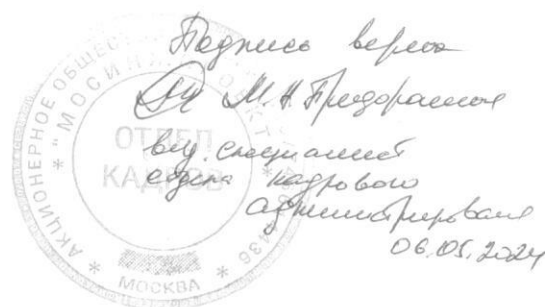 Подпись верна
М.Н. Придорожная
вед. специалист
отдела кадрового
администрирования
06.05.2024
АКЦИОНЕРНОЕ ОБЩЕСТВО
"МОСИНЖПРОЕКТ"
ОТДЕЛ
КАДРОВ
МОСКВА